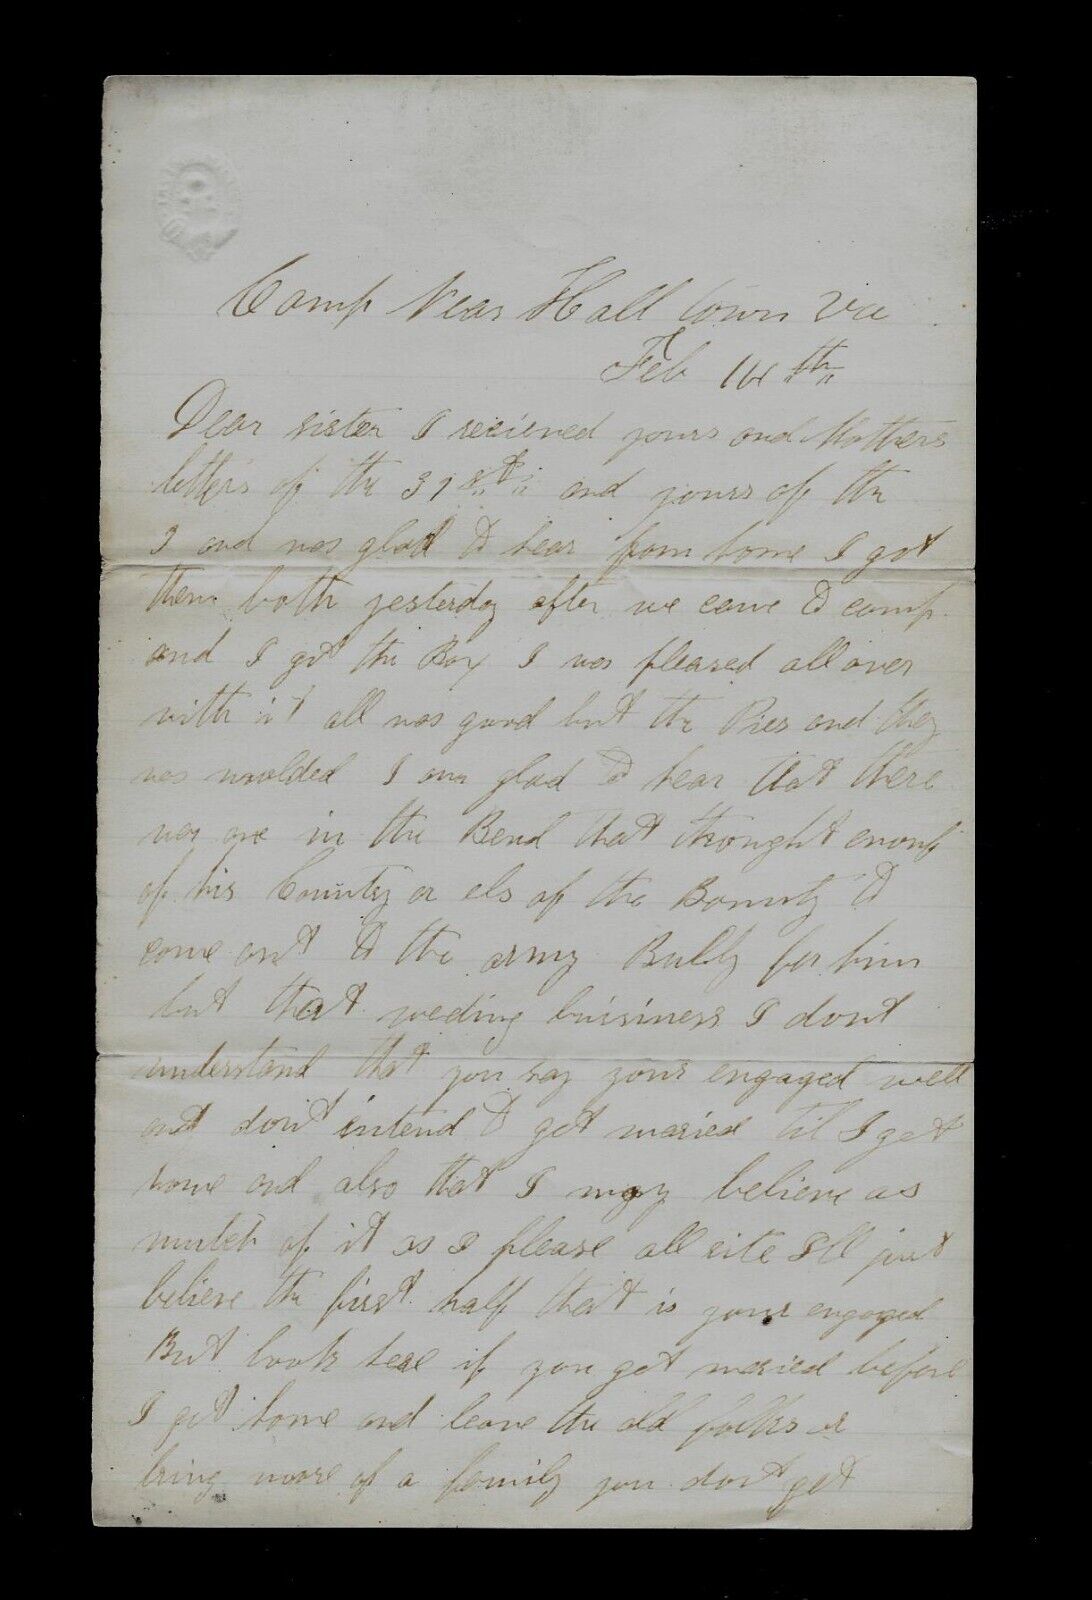 Camp Near Hall town Va
Feb 14th
Dear sister I recieved yours and Mothers
letters of the 31st and yours of the
3 and was glad to hear from home I got
them both yesterday after we came to camp
and I got the Box I was pleased all over
with it all was good but the Pies and they
was moulded I am glad to hear that there
was one in the Bend that thought enough
of his Country or els of the Bounty to
come out to the army Bully for him
but that weding buisiness I dont
understand that you say your engaged well
and dont intend to get maried til I get
home and also that I may believe as
mutch of it as I please all rite Ill just
believe the first half that is your engaged
But look here if you get maried before
I get home and leave the old folks or
bring more of a family you dont get